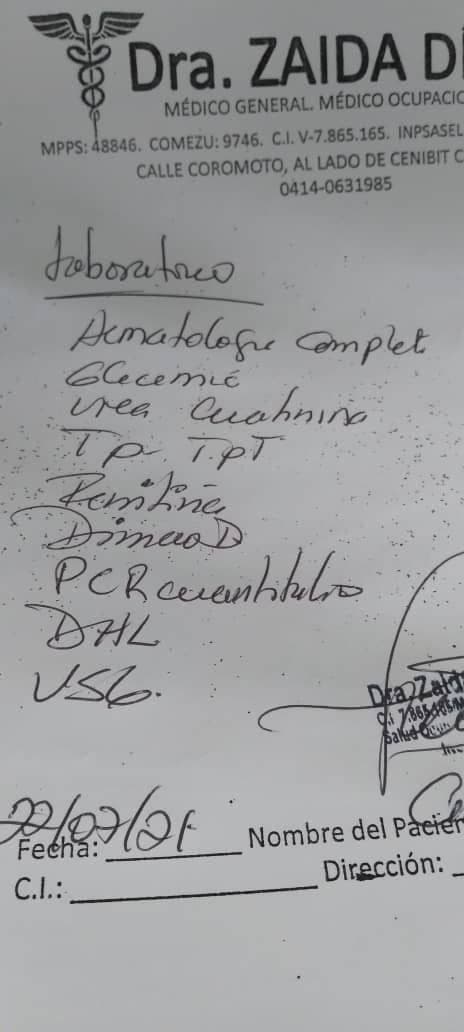 Dra. ZAIDA DÍ
MÉDICO GENERAL. MÉDICO OCUPACIO
MPPS: 48846. COMEZU: 9746. C.I. V-7.865.165. INPSASEL
CALLE COROMOTO, AL LADO DE CENIBIT C
0414-0631985
Laboratorio
Hematologia Complet
Glicemic
Urea Creatinina
Tp TpT
Ferritina
Dimero D
PCR cuantitativo
DHL
VSG.
Dra. Zaid
C.I 7.865.165/M
Salud
22/07/21
Fecha:
Nombre del Pacien
C.I.:
Dirección: